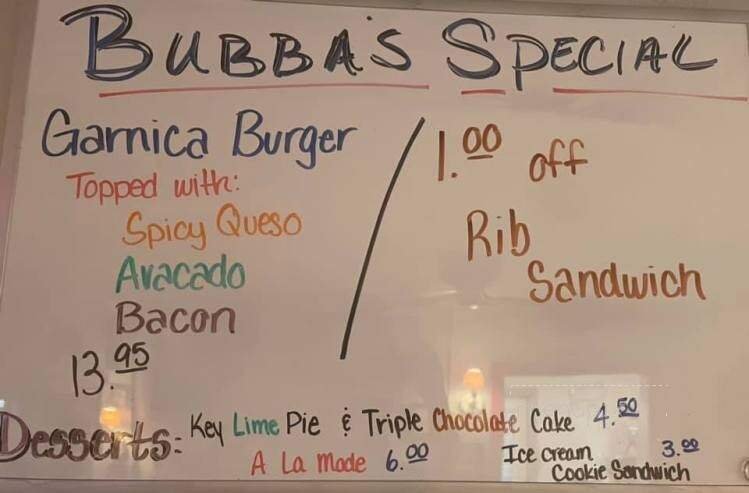 BUBBA'S SPECIAL
Garnica Burger
Topped with:
Spicy Queso
Avacado
Bacon
13.95
1.00 off
Rib
Sandwich
Desserts: Key Lime Pie & Triple Chocolate Cake 4.50
A La Mode 6.00
Ice cream 3.00
Cookie Sandwich